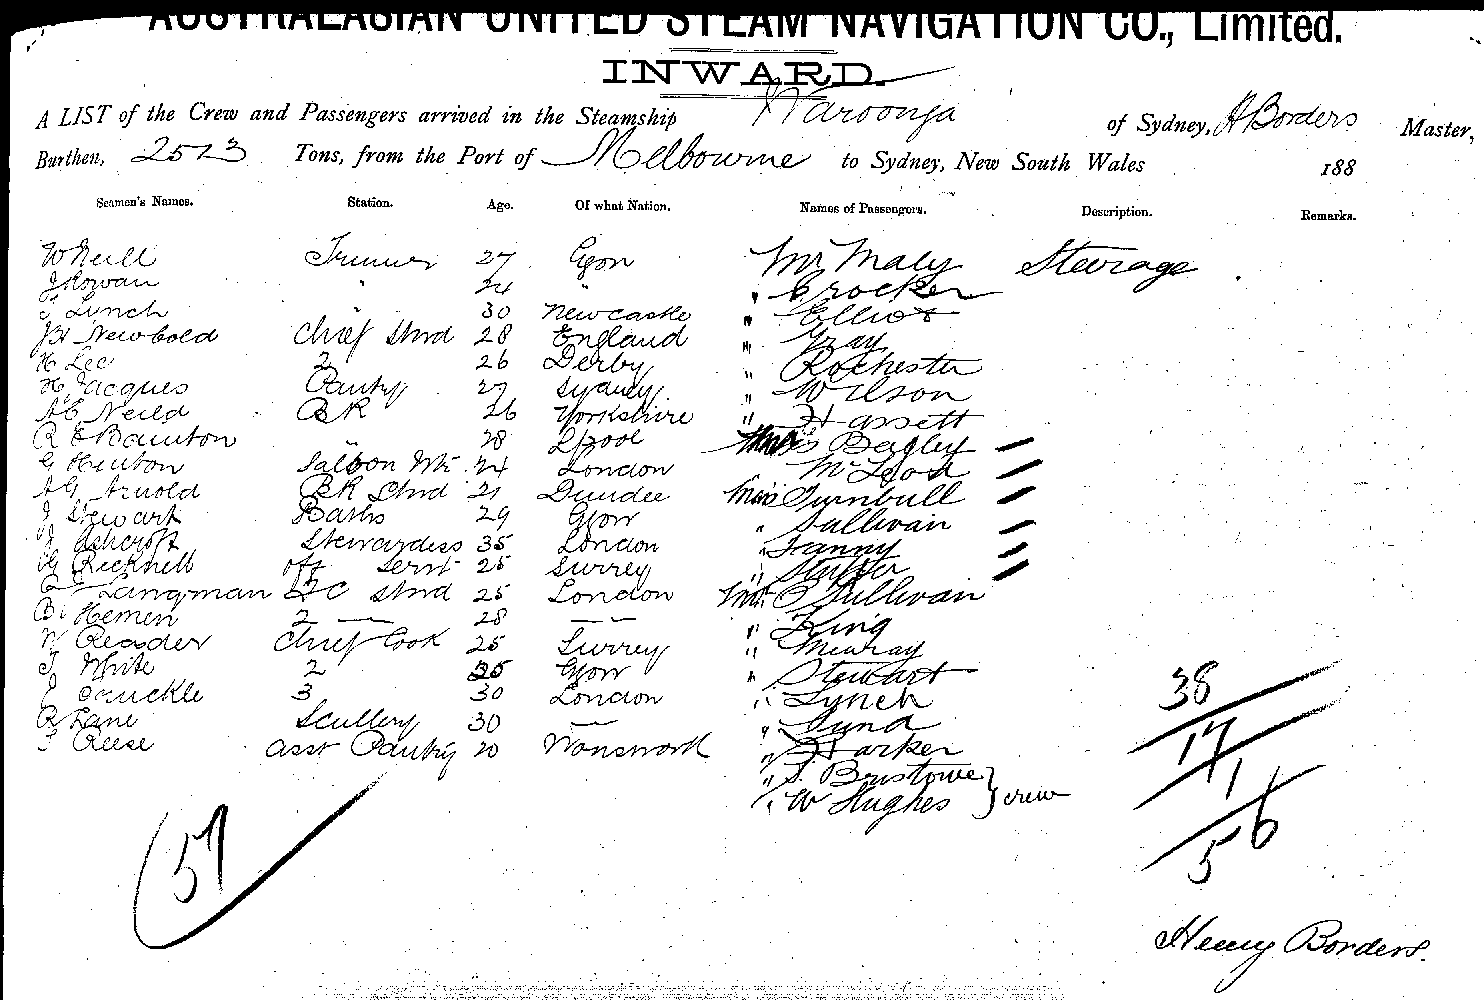 AUSTRALASIAN UNITED STEAM NAVIGATION CO., Limited.
INWARD.
A LIST of the Crew and Passengers arrived in the Steamship Waroonga of Sydney, H Borders Master,
Burthen, 2513 Tons, from the Port of Melbourne to Sydney, New South Wales 188
Seamen's Names. Station. Age. Of what Nation. Names of Passengers. Description. Remarks.
W Neill Trimmer 27 Mr Maly Steerage
J Rowan " 24 " " Crocker
Lynch " 30 Newcastle " Elliot
Newbold Chief Stwd 28 England " Gray
H Lee 2 26 Derby " Rochester
H Jacques Pantry 27 Sydney " Wilson
A E Neild BR 26 Yorkshire " Hassett
R E Bainton " 28 Lpool Bagley
G Hinton Saloon 24 London McLeod
A G Arnold BR Stwd 21 Dundee Turnbull
J Stewart Baths 29 Glow " Sullivan
J Ashcroft Stewardess 35 London "
Bicknell off Servt 25 Surrey "
Langman Stwd 25 London O'Sullivan
Hemen 2 — 28 — " King
W Reader Chief Cook 25 Surrey " Murray
T White 2 35 Glow " Stewart
3 30 London " Lynch
R Lane Scullery 30 — "
T Reese asst Pantry 20 Wonsworth " Harker
" S. Bristowe
" W Hughes } crew
38
17
1
56
57
Henry Borders.